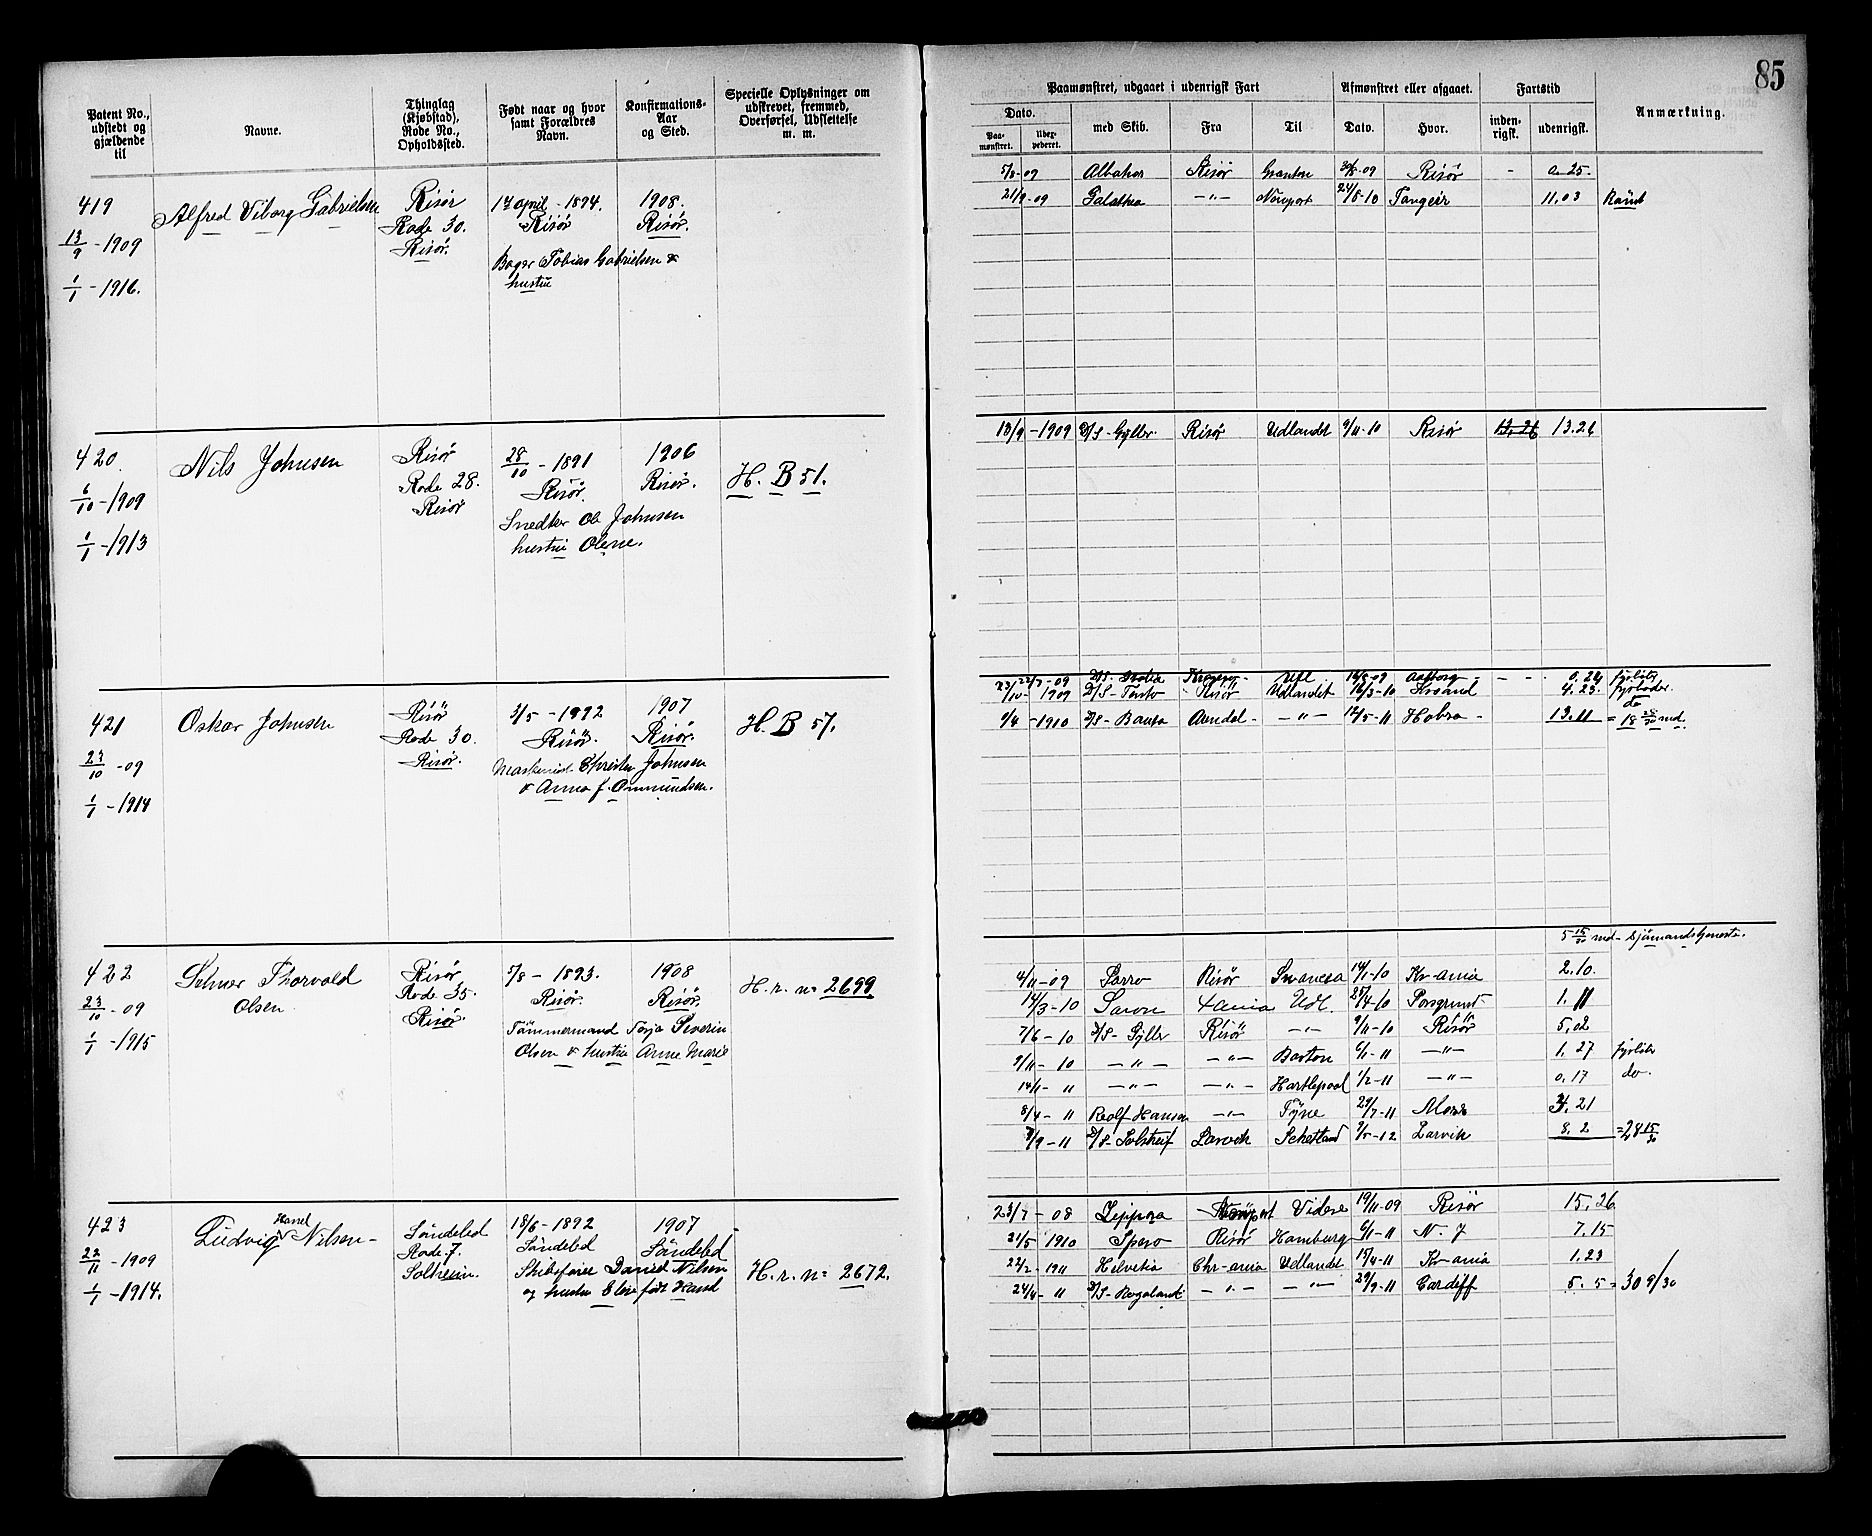 85
Patent No., udstedt og gjældende til
Navne.
Thinglag (Kjøbstad), Rode No., Opholdssted.
Født naar og hvor samt Forældres Navn.
Konfirmations-Aar og Sted.
Specielle Oplysninger om udskrevet, fremmed, Overførsel, Udslettelse m. m.
Paamønstret, udgaaet i udenrigsk Fart
Dato.
Paa-mønstret.
med Skib.
Fra
Til
Afmønstret eller afgaaet.
Dato.
Hvor.
Fartstid
inden-rigsk.
udenrigsk.
Anmærkning.
419
13/9 - 1909
1/1 - 1916.
Alfred Viborg Gabrielsen
Risør
Rode 30.
Risør.
14 april - 1894.
Risør
Bager Tobias Gabrielsen &
hustru
1908.
Risør.
5/8-09 Albatros Risør Granton 30/8-09 Risør - 0.25.
21/9-09 Galathea -"- Newport 24/8-10 Tangier 11.03 Rømt
420.
6/10 - 1909
1/1 - 1913
Nils Johnsen
Risør
Rode 28.
Risør
28/10 - 1891
Risør.
Snedker Ole Johnsen
hustru Olene.
1906
Risør.
H. B 51.
13/9 - 1909 D/S - Gyller Risør Udlandet 9/11-10 Risør 13.26 13.26
421
23/10 - 09
1/1 - 1914
Oskar Johnsen
Risør
Rode 30.
Risør.
3/5 - 1892
Risør.
Maskinist Christen Johnsen
& Anna f. Ommundsen.
1907
Risør.
H. B 57.
22/7-09 D/S Kragerø - Udl 16/8-09 Aalborg - - - 0.24 fyrbøter
23/10 - 1909 D/S - Risør Udlandet 16/3-10 4.23. fyrbøder.
9/4 - 1910 D/S - Arendal - -"- 12/5-11 Hobro - 13.11 do = 18 28/30 md.
422
23/10 - 09
1/1 - 1915
Selmer Thorvald
Olsen
Risør
Rode 35.
Risør.
5/8 - 1893.
Risør.
Tømmermand Terje Severin
Olsen & hustru Anne Marie
1908
Risør.
H. r. no 2699
5 15/30 md - Sjømandstjeneste.
4/11-09 Risør Swansea 14/1-10 Kr-ania 2.10.
14/3-10 Saron Xania Udl. 25/4-10 Porsgrund 1.11
7/6 - 10 D/S - Gyller Risør -"- 9/11-10 Risør 5.02
9/11 - 10 -"- -"- Boston 6/1-11 -"- 1.27 fyrbøter
14/1 - 11 -"- -"- Hartlepool 1/2-11 -"- 0.17 do.
8/4 - 11 Rolf Hansen -"- Tyne 29/7-11 Moss 3.21
7/9 - 11 D/S - Larvik Schetland 9/5-12 Larvik 8.2 = 28 15/30
423
22/11 - 1909
1/1 - 1914.
Ludvig Hassel Nilsen -
Søndeled
Rode 7.
Solheim.
18/6 - 1892
Søndeled
Skibsfører Daniel Nilsen
og hustru Elise født Hassel
1907
Søndeled
H. r. no 2672.
23/7 - 08 Newport 19/11-09 Risør 15.26
21/5 1910 Spero Risør Hamburg 6/1-11 N. Y 7.15
22/2 - 1911 Helvetia Chr-ania Udlandet 15/4-11 Kr-ania 1.23
24/4 - 11 D/S - Rogaland -"- -"- 29/9-11 Cardiff 5.5 = 30 9/30